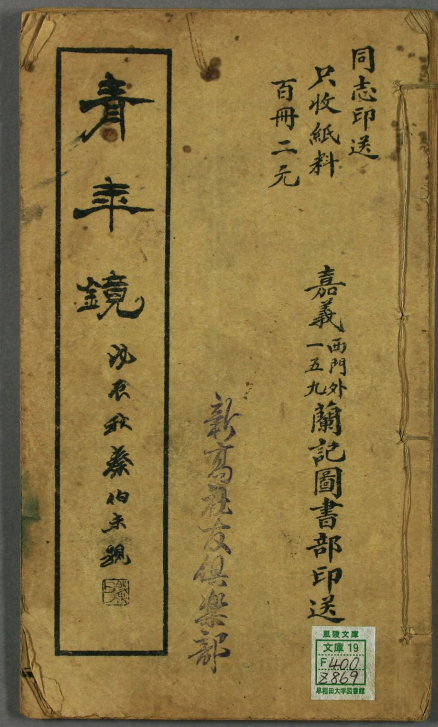 同志印送
只收紙料
百冊二元
嘉義西門外一五九蘭記圖書部印送
新高社友俱樂部
青年鏡
戊辰秋蔡伯未題
風陵文庫
文庫 19
F400
Z869
早稲田大学図書館